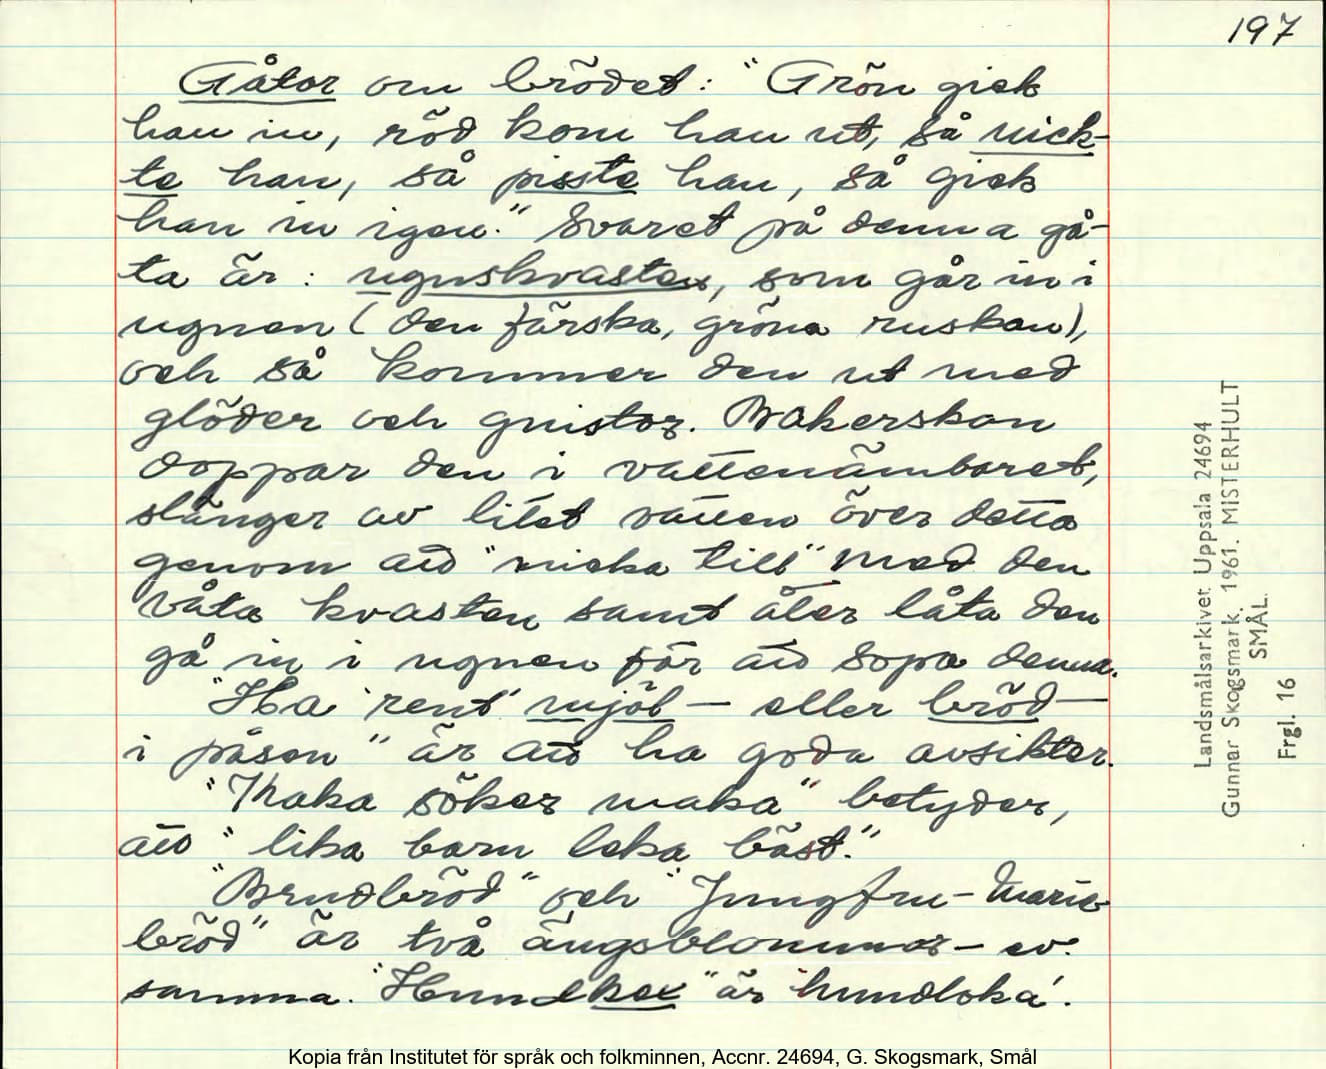 197
Gåtor om brödet: "Grön gick
han in, röd kom han ut, så nick-
te han, så pisste han, så gick
han in igen." Svaret på denna gå-
ta är: ugnskvasten, som går in i
ugnen (den färska, gröna ruskan),
och så kommer den ut med
glöder och gnistor. Bakerskan
doppar den i vattenämbaret,
slänger av litet vatten över detta
genom att "nicka till" med den
våta kvasten samt åter låta den
gå in i ugnen för att sopa denna.
"Ha 'rent' mjöl - eller bröd -
i påsen" är att ha goda avsikter.
"Maka söker maka" betyder,
att "lika barn leka bäst."
"Brudbröd" och "Jungfru-Marie
bröd" är två ängsblommor - ev.
samma. "Hundkex" är 'hundloka'.
Landsmålsarkivet Uppsala 24694
Gunnar Skogsmark. 1961. MISTERHULT
SMÅL.
Frgl. 16
Kopia från Institutet för språk och folkminnen, Accnr. 24694, G. Skogsmark, Smål